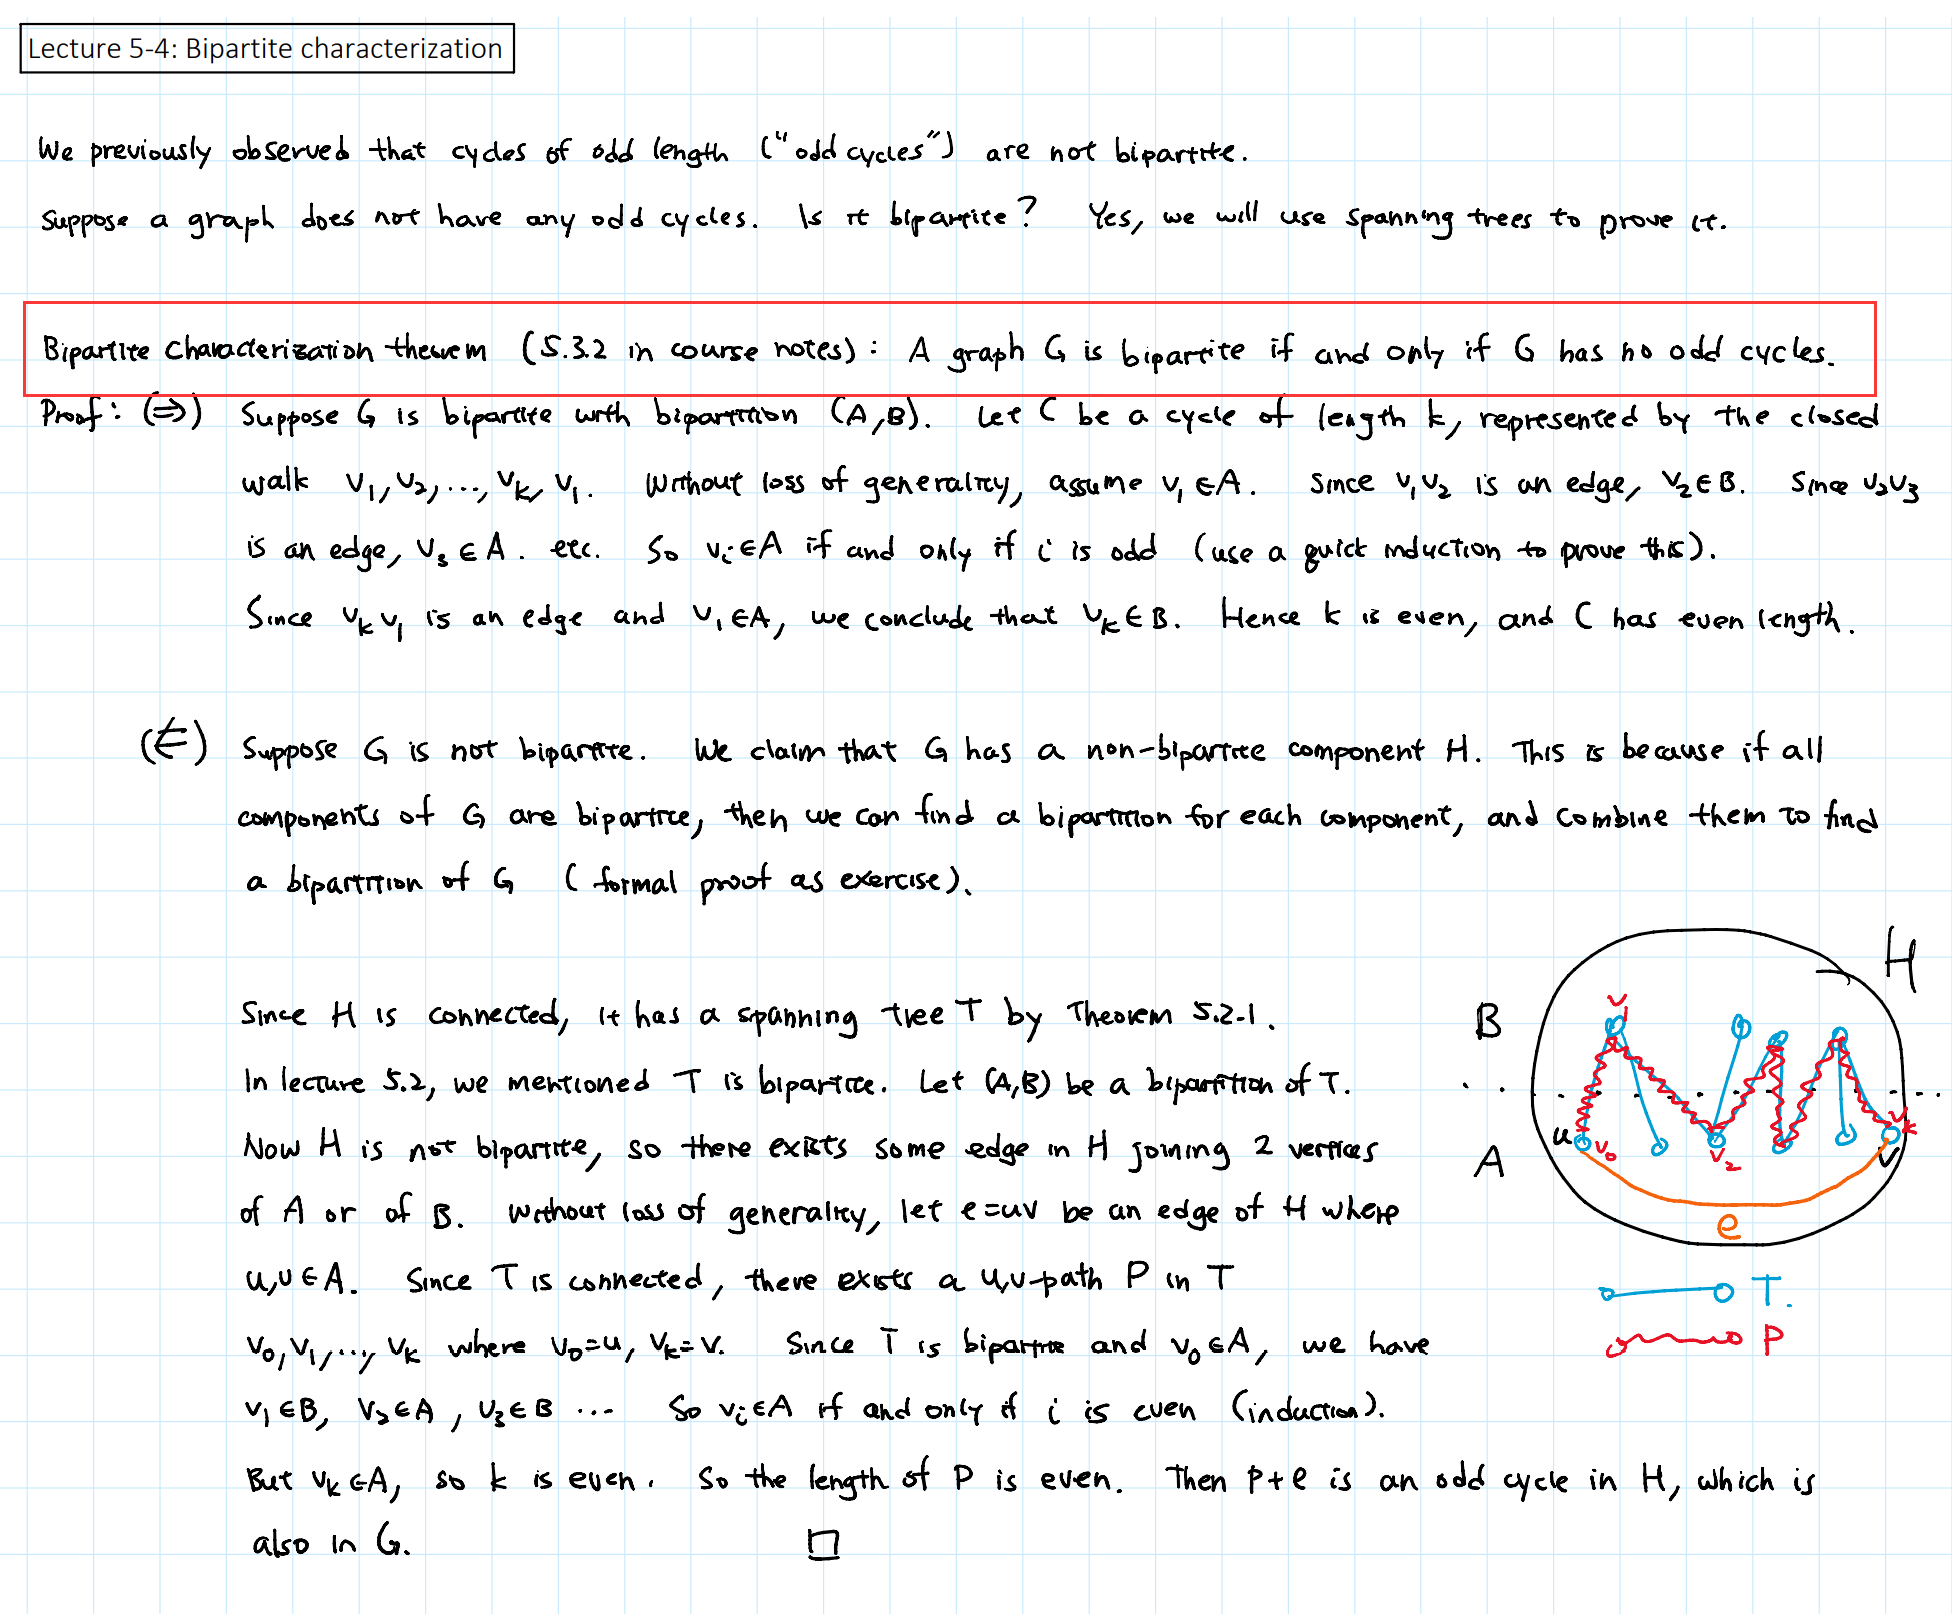 Lecture 5-4: Bipartite characterization
We previously observed that cycles of odd length ("odd cycles") are not bipartite.
Suppose a graph does not have any odd cycles. Is it bipartite? Yes, we will use spanning trees to prove it.
Bipartite characterization theorem (5.3.2 in course notes): A graph G is bipartite if and only if G has no odd cycles.
Proof: (⇒) Suppose G is bipartite with bipartition (A,B). Let C be a cycle of length k, represented by the closed
walk v₁,v₂,..., vₖ, v₁. Without loss of generality, assume v₁∈A. Since v₁v₂ is an edge, v₂∈B. Since v₂v₃
is an edge, v₃∈A. etc. So vᵢ∈A if and only if i is odd (use a quick induction to prove this).
Since vₖv₁ is an edge and v₁∈A, we conclude that vₖ∈B. Hence k is even, and C has even length.
(⇐) Suppose G is not bipartite. We claim that G has a non-bipartite component H. This is because if all
components of G are bipartite, then we can find a bipartition for each component, and combine them to find
a bipartition of G (formal proof as exercise).
Since H is connected, it has a spanning tree T by Theorem 5.2.1.
In lecture 5.2, we mentioned T is bipartite. Let (A,B) be a bipartition of T.
Now H is not bipartite, so there exists some edge in H joining 2 vertices
of A or of B. Without loss of generality, let e=uv be an edge of H where
u,v∈A. Since T is connected, there exists a u,v-path P in T
v₀,v₁,..., vₖ where v₀=u, vₖ=v. Since T is bipartite and v₀∈A, we have
v₁∈B, v₂∈A, v₃∈B ... So vᵢ∈A if and only if i is even (induction).
But vₖ∈A, so k is even. So the length of P is even. Then P+e is an odd cycle in H, which is
also in G. □
H
B
v₁
A
u
v₀
v₂
vₖ
v
e
T.
P